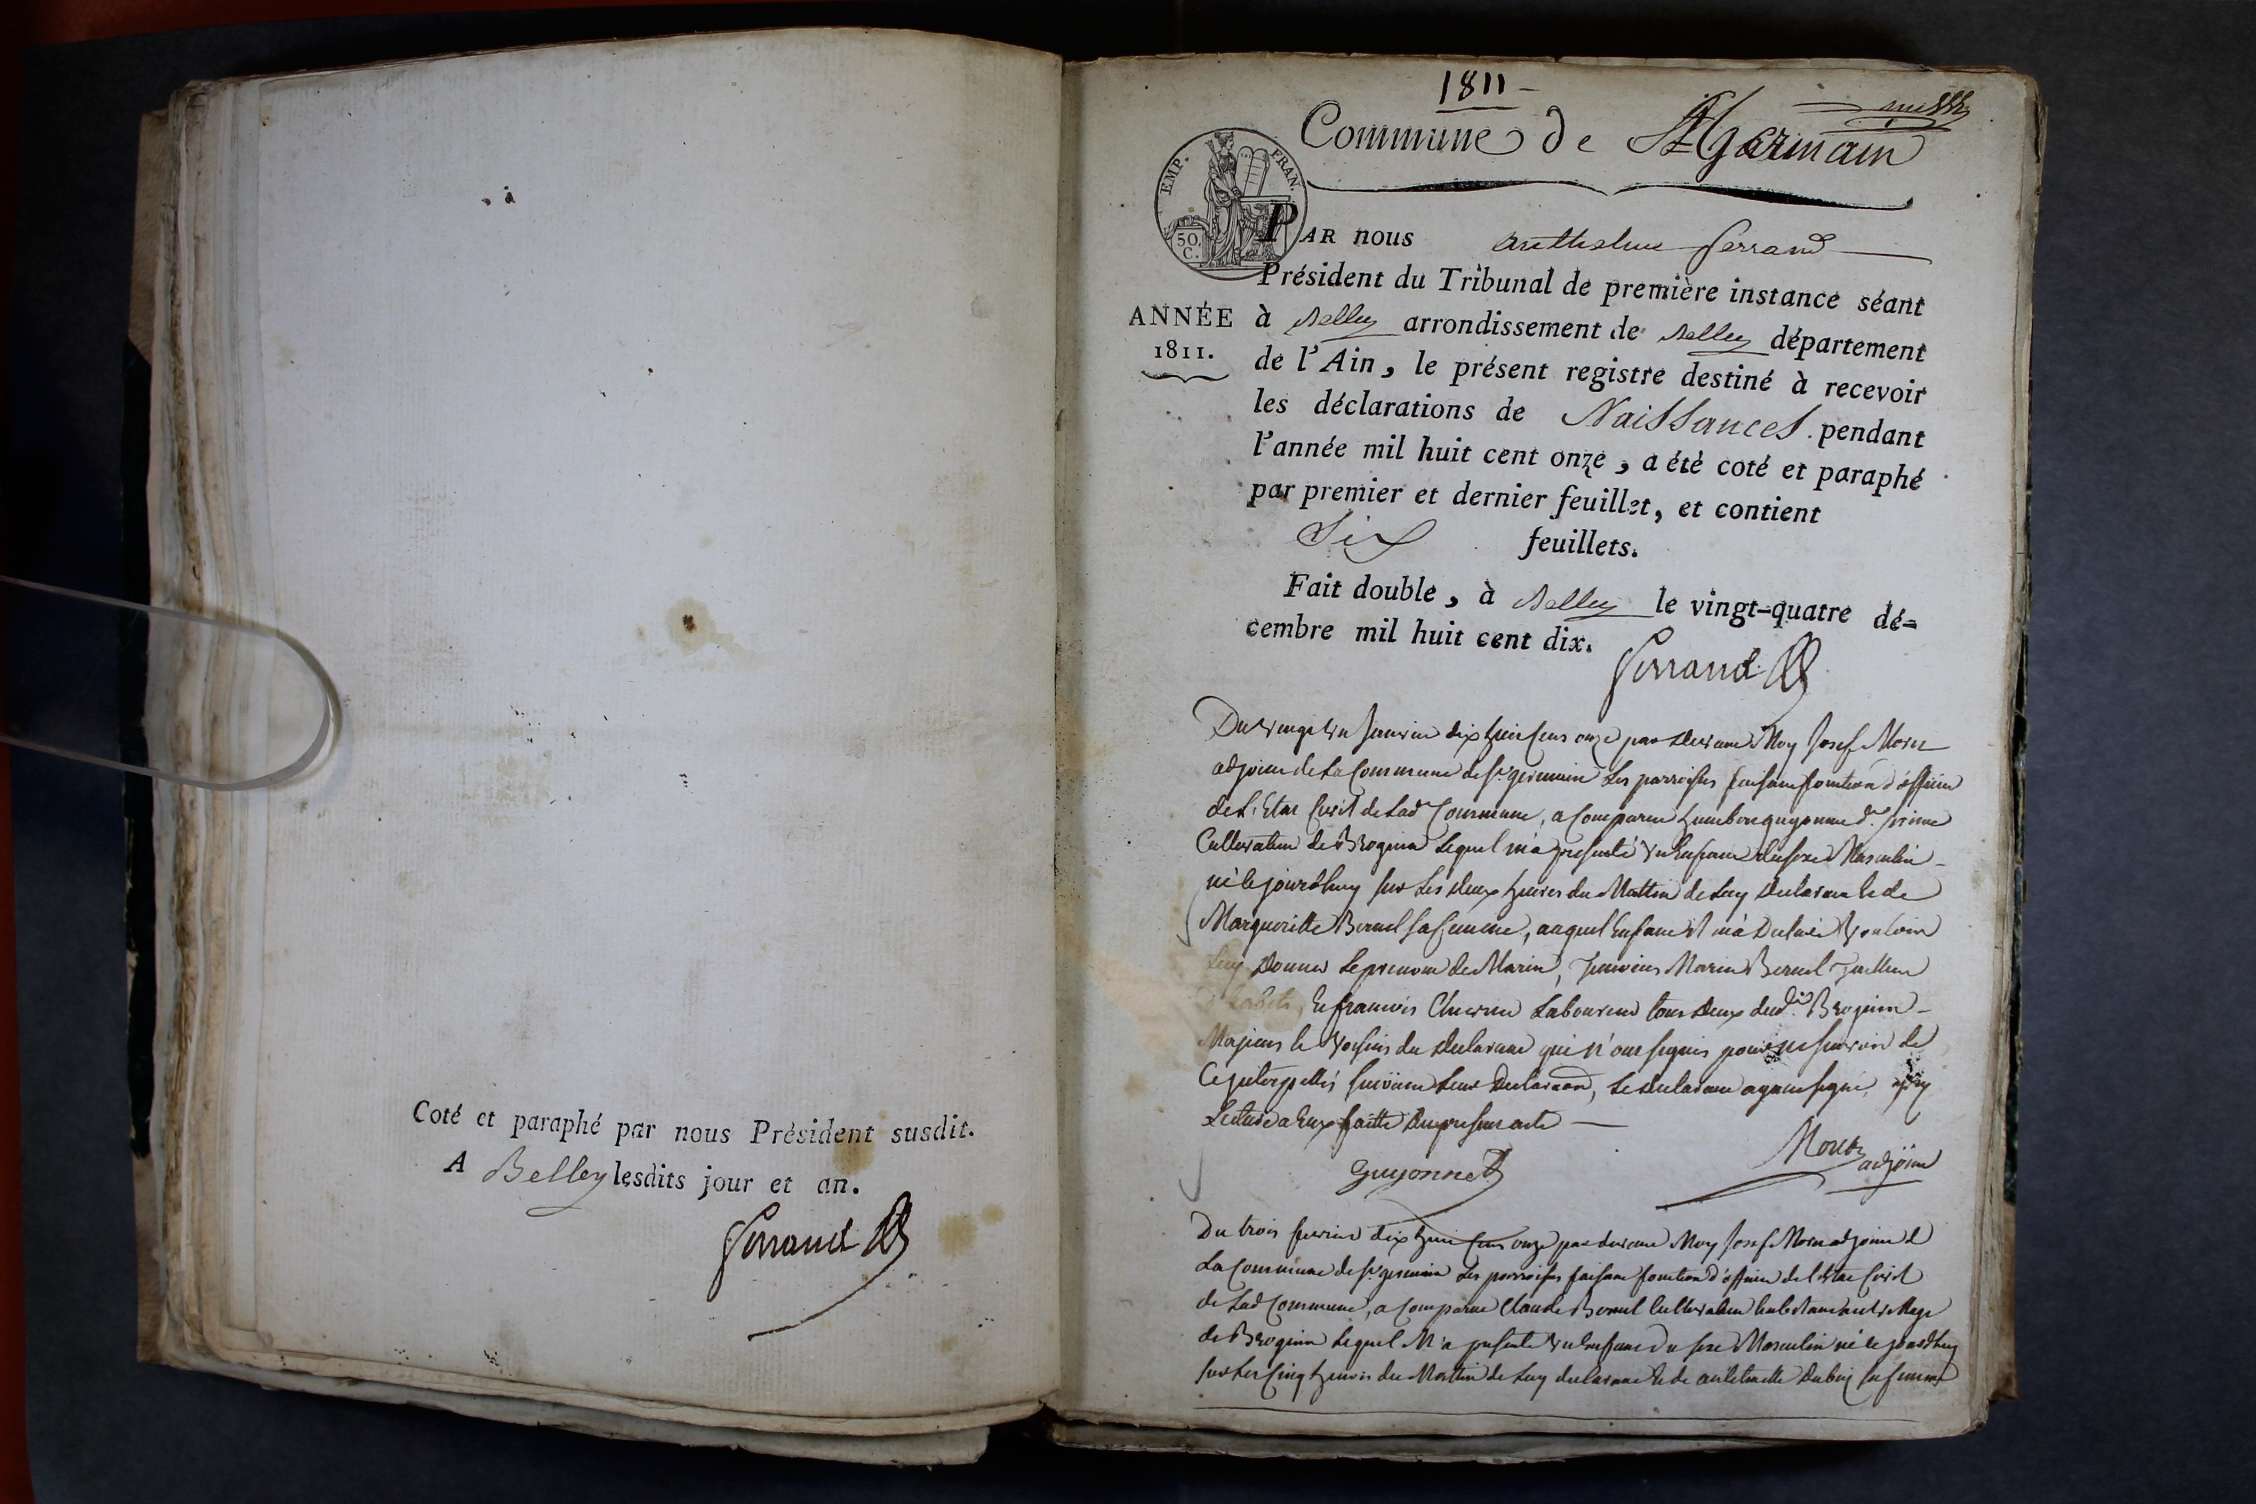 Coté et paraphé par nous Président susdit.
A Belley lesdits jour et an.
Ferrand
1811 -
Commune de St Germain
EMP. FRAN.
50. C.
PAR nous Anthelme Ferrand
Président du Tribunal de première instance séant
ANNÉE
1811.
à Belley arrondissement de Belley département
de l'Ain, le présent registre destiné à recevoir
les déclarations de Naissances. pendant
l'année mil huit cent onze, a été coté et paraphé
par premier et dernier feuillet, et contient
Six feuillets.
Fait double, à Belley le vingt-quatre dé=
cembre mil huit cent dix.
Ferrand
Du vingt un Janvier dix huit cens onze par devant Moy Josef Moru
adjoint de La Commune de St germain Les parroisses faisant fonction d'officier
de L'Etat Civil de Lad Commune, a Comparu
Cultivateur de Brognin Lequel m'a presenté un Enfant du sexe Masculin
né le jourdhuy sur Les deux heures du Mattin de Luy declarant & de
Margueritte Bornel sa femme, auquel Enfant il m'a Declaré Vouloir
Luy Donner Le prenom de Marin,
& francois Laboureur tous deux dud. Brognin
Majeurs & Voisins du declarant qui n'ont signés pour ne savoir de
Ce suivant Leur Declaraon, Le declarant ayant signé, après
Lecture a Eux faitte Du present acte
Guyonnet
adjoint
Du trois fevrier dix huit Cens onze par devant Moy Josef Moru adjoint d
La Commune de St germain Les parroisses faisant fonction d'officier de l'Etat Civil
de Lad Commune, a Comparu Claude Bornel Cultivateur
de Brognin Lequel M'a presenté un Enfant du sexe Masculin né le jourdhuy
sur Les Cinq heures du Mattin de Luy declarant & de sa femme